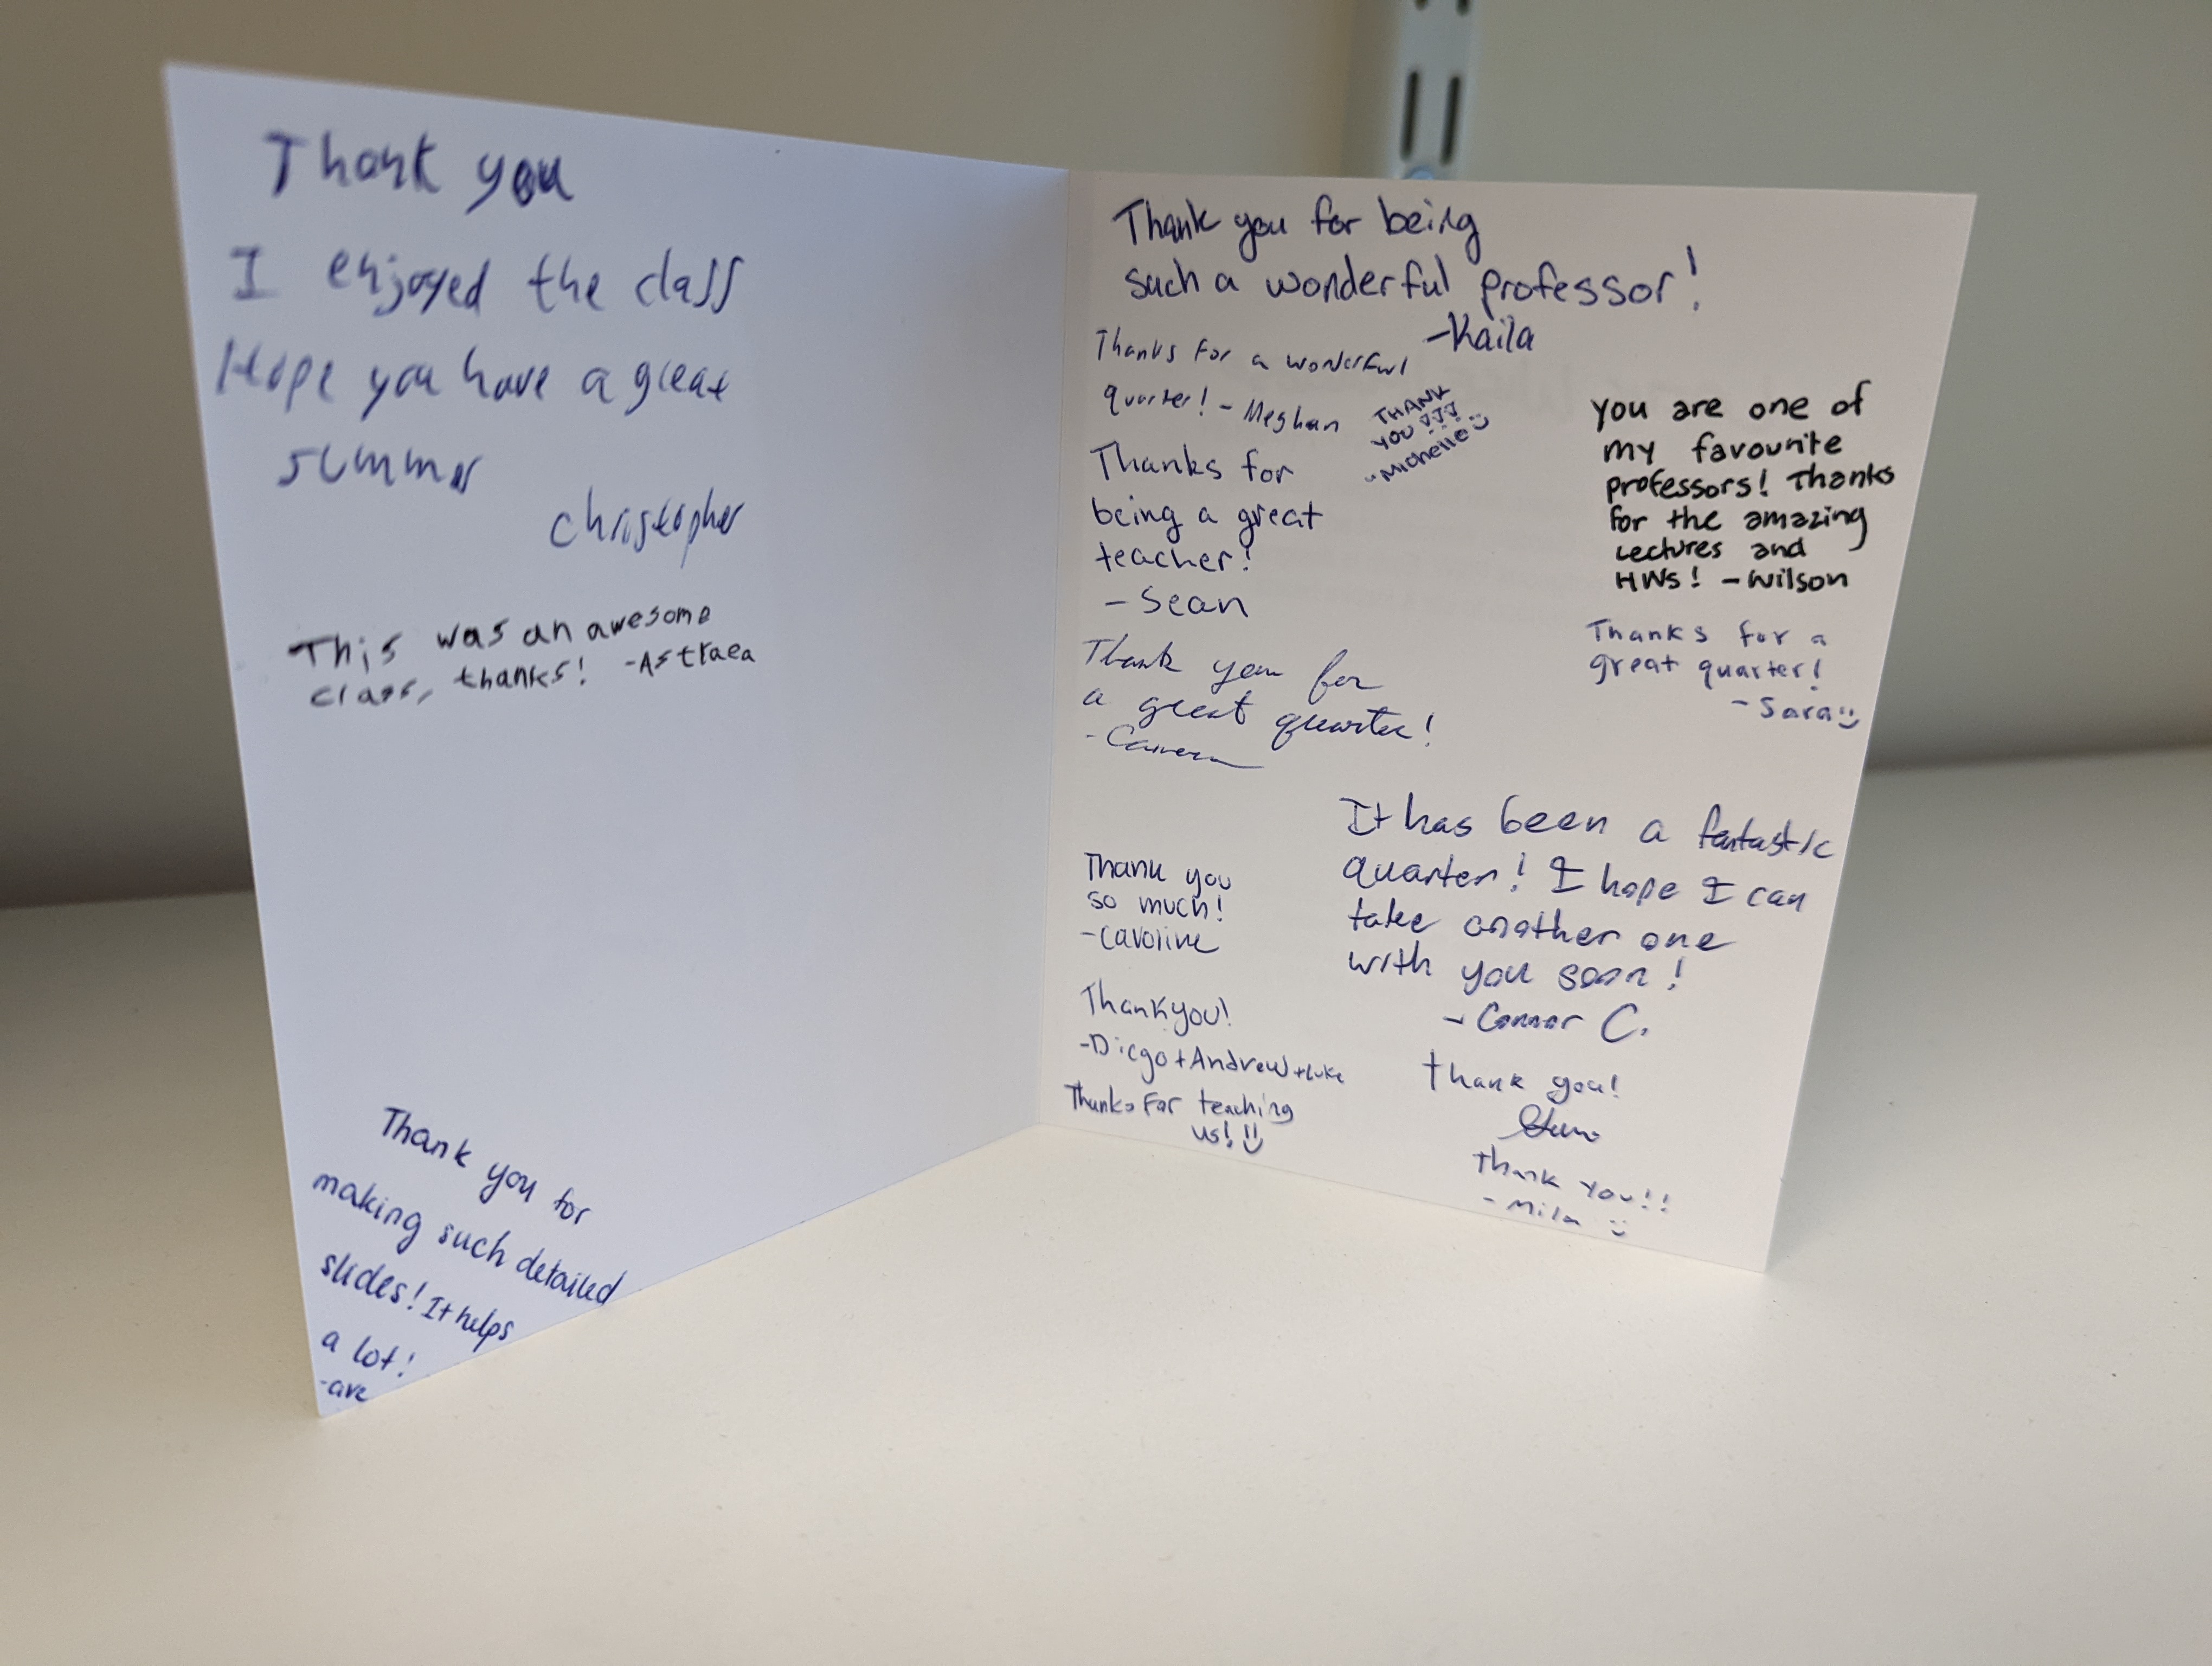 Thank you
I enjoyed the class
Hope you have a great
summer
Christopher
This was an awesome
class, thanks! -Astraea
Thank you for
making such detailed
slides! It helps
a lot!
-ave
Thank you for being
such a wonderful professor!
-Kaila
Thanks for a wonderful
quarter! - Meghan
THANK
YOU!!!
-Michelle
Thanks for
being a great
teacher!
- Sean
Thank you for
a great quarter!
you are one of
my favourite
professors! Thanks
for the amazing
Lectures and
HWs! - Wilson
Thanks for a
great quarter!
- Sara
Thank you
so much!
-Caroline
It has been a fantastic
quarter! I hope I can
take another one
with you soon!
- Connor C.
Thankyou!
-Diego + Andrew + Luke
Thanks for teaching
us!
thank you!
Thank you!!
- Mila